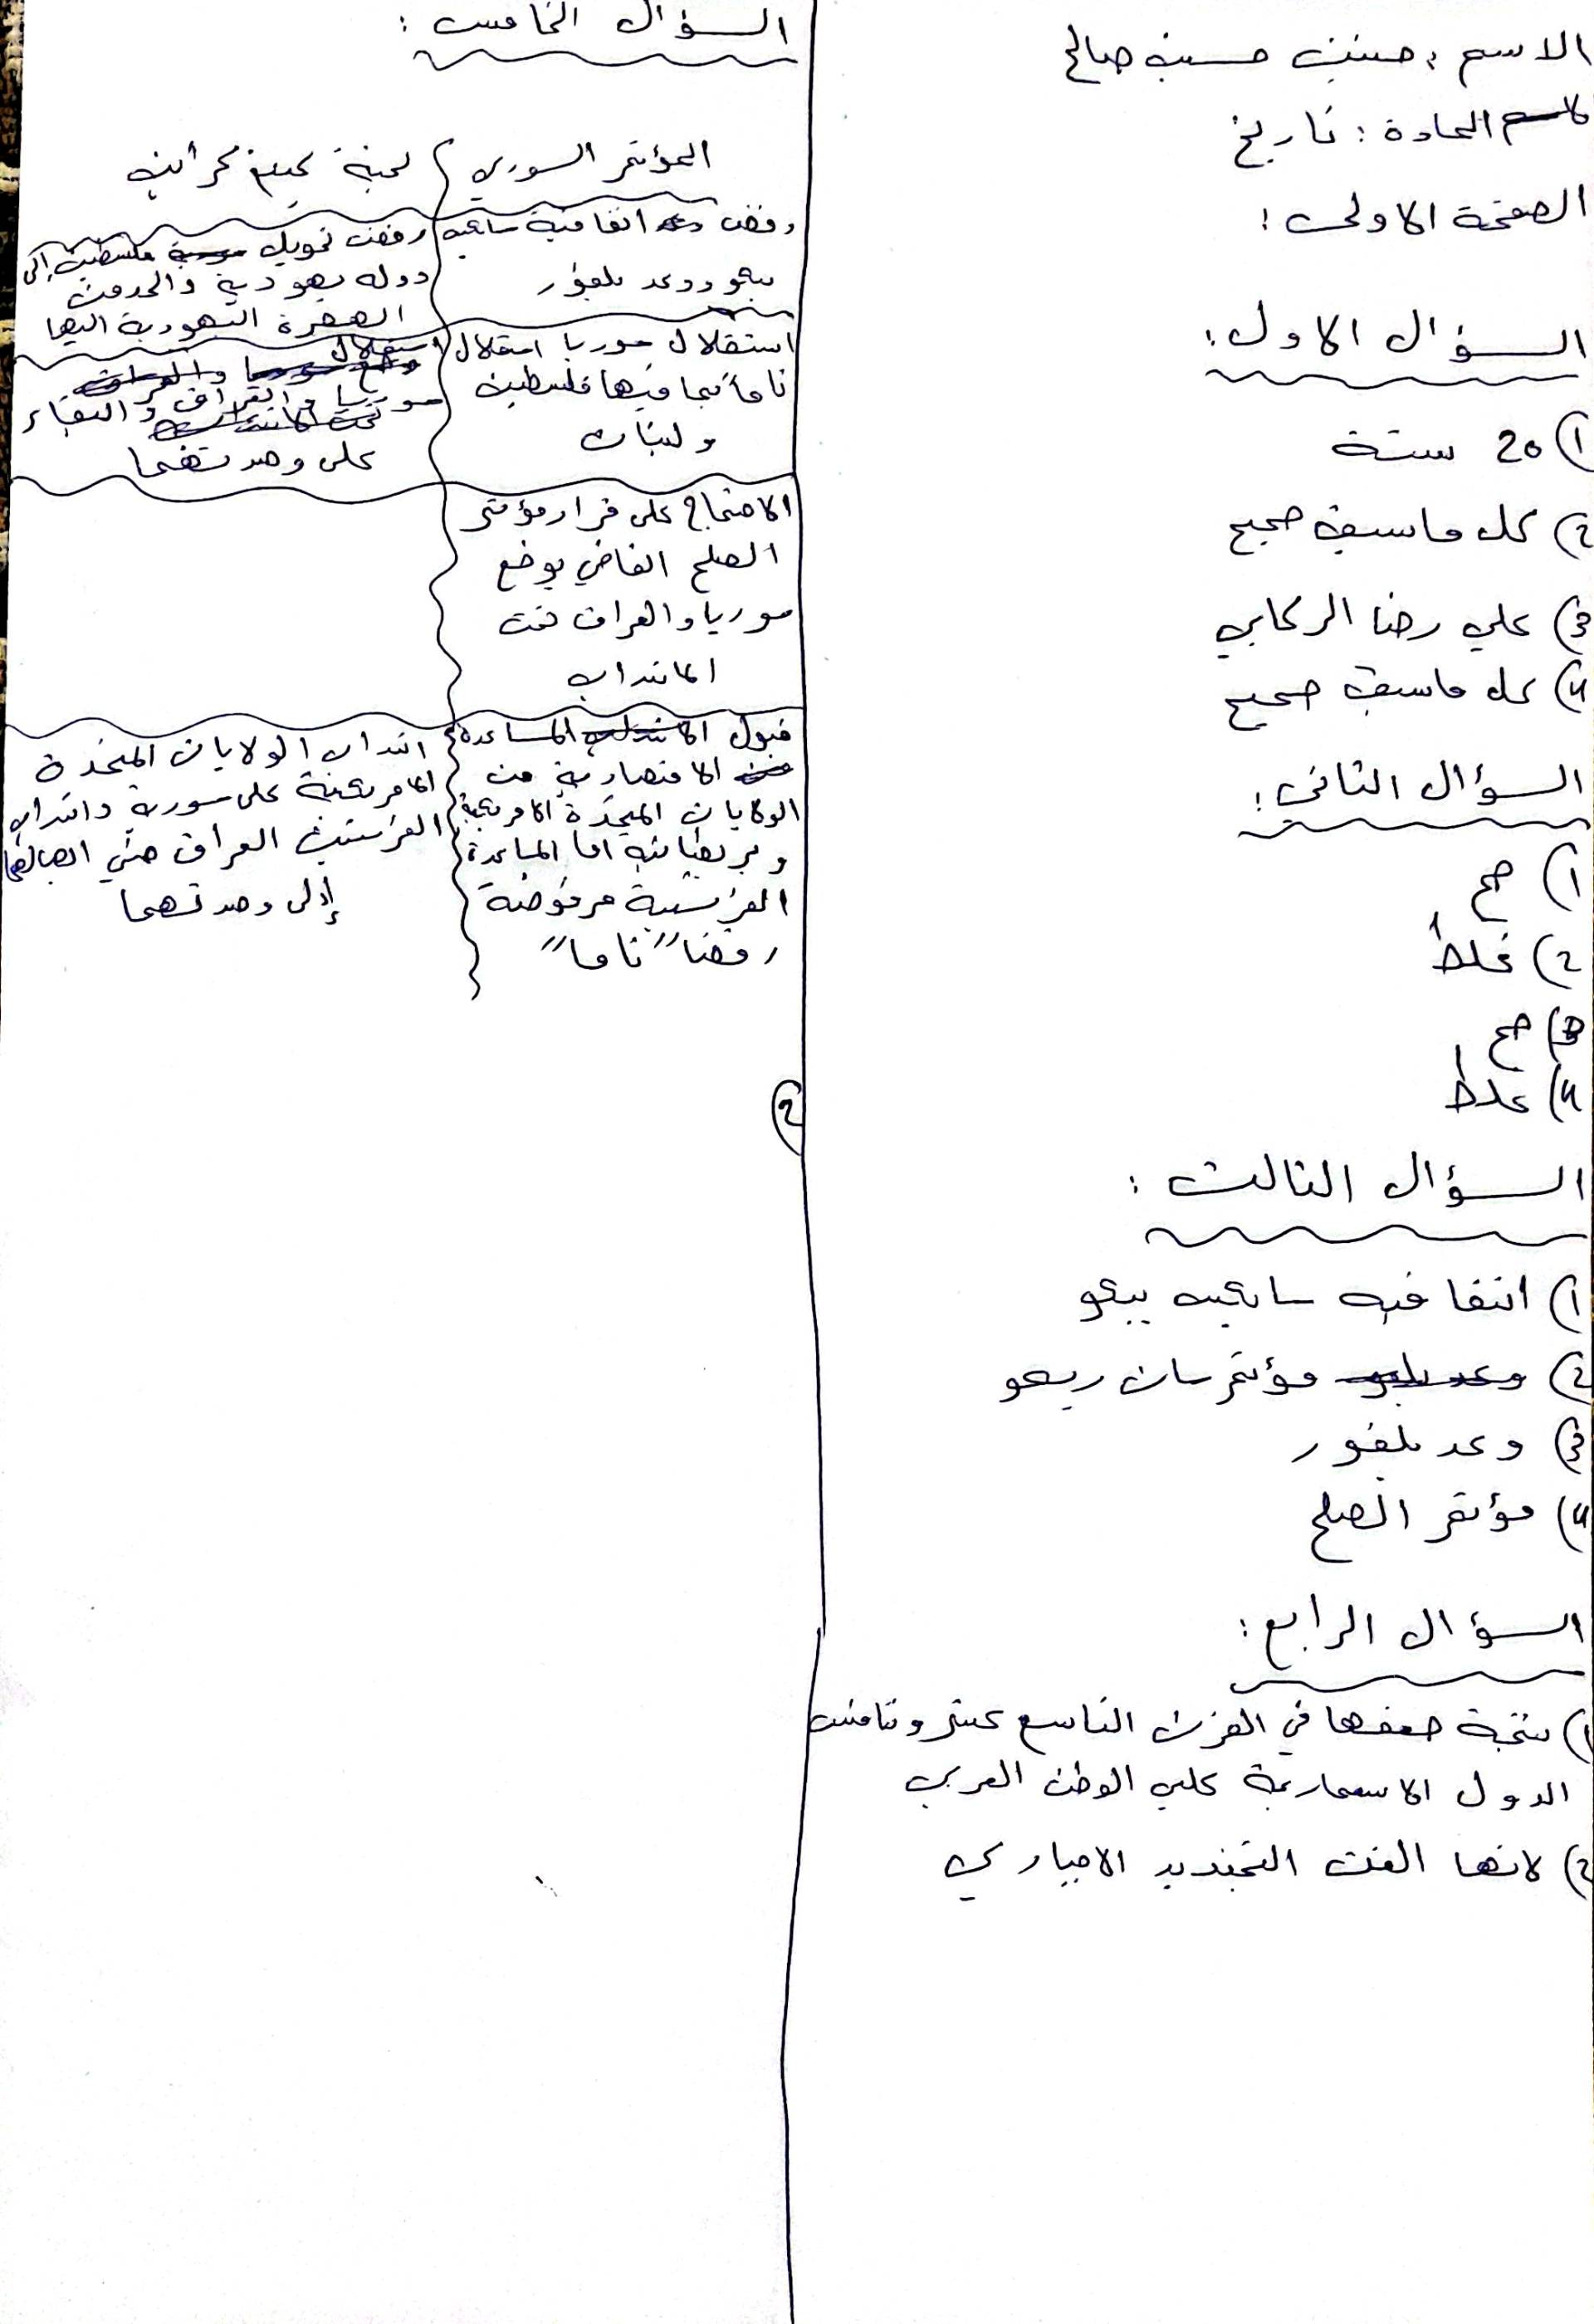 الاسم : حسين صالح
المادة : تاريخ
الصفحة الاولى :
السؤال الاول :
1) 20 سنة
2) كل ماسبق صحيح
3) علي رضا الركابي
4) كل ماسبق صحيح
السؤال الثاني :
1) صح
2) غلط
3) صح
4) غلط
السؤال الثالث :
1) اتفاقيه سايكيس بيكو
2) مؤتمر سان ريمو
3) وعد بلفور
4) مؤتمر الصلح
السؤال الرابع :
1) نتيجة ضعفها في القرن التاسع عشر وتنافست
الدول الاستعمارية على الوطن العربي
2) لانها الغت التجنيد الاجباري
السؤال الخامس :
المؤتمر السوري
رفض اتفاقية سايكيس
بيكو ووعد بلفور
استقلال سوريا استقلال
تاماً بما فيها فلسطين
ولبنان
الاحتجاج على قرار مؤتمر
الصلح القاضي بوضع
سوريا والعراق تحت
الانتداب
قبول المساعدة
الاقتصادية من
الولايات المتحدة الامريكية
وبريطانيه اما المساعدة
الفرنسية مرفوضة
رفضا" تاما"
لجنة كينغ كراين
رفضت تحويل فلسطين إلى
دوله يهودية والحد من
الهجرة اليهودية اليها
استقلال
سوريا والعراق والبقاء
على وحدتهما
انتداب الولايات المتحدة
الامريكية على سورية وانتداب
العراق حتى
إلى وحدتهما
2